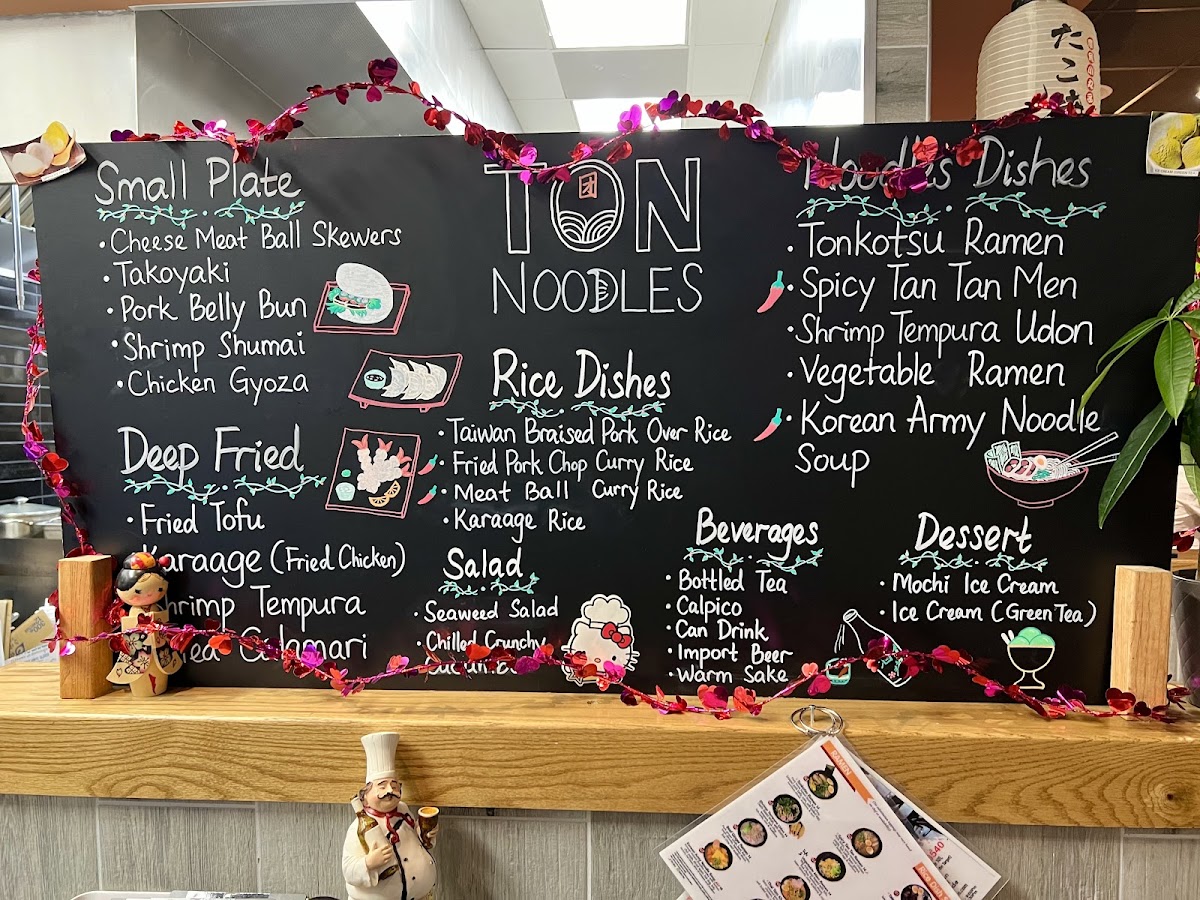 Small Plate
· Cheese Meat Ball Skewers
· Takoyaki
· Pork Belly Bun
· Shrimp Shumai
· Chicken Gyoza
Deep Fried
· Fried Tofu
Karaage (Fried Chicken)
Shrimp Tempura
Fried Calamari
TON
NOODLES
Rice Dishes
· Taiwan Braised Pork Over Rice
· Fried Pork Chop Curry Rice
· Meat Ball Curry Rice
· Karaage Rice
Salad
· Seaweed Salad
· Chilled Crunchy
Noodles Dishes
· Tonkotsu Ramen
· Spicy Tan Tan Men
· Shrimp Tempura Udon
· Vegetable Ramen
· Korean Army Noodle
Soup
Beverages
· Bottled Tea
· Calpico
· Can Drink
· Import Beer
· Warm Sake
Dessert
· Mochi Ice Cream
· Ice Cream (Green Tea)
たこ
RAMEN